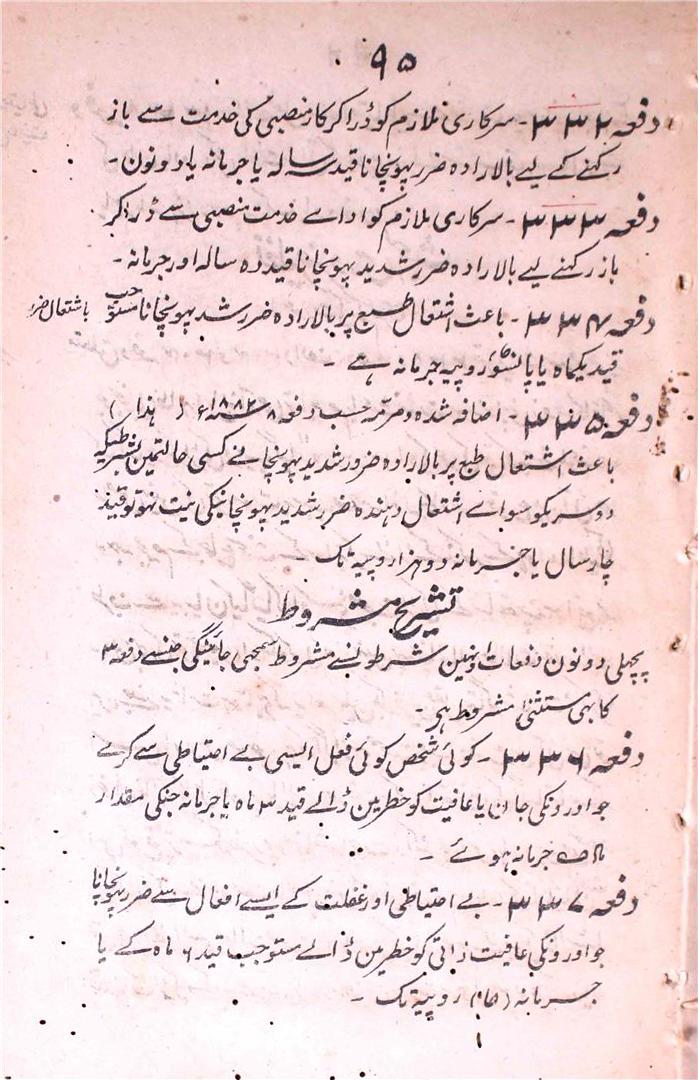 ۹۵
دفعہ ۳۳۲ - سرکاری ملازم کو ڈرا کر کار منصبی کی خدمت سے باز
رکہنے کے لیے بالارادہ ضرر پہونچانا قید سہ سالہ یا جرمانہ یا دونون -
دفعہ ۳۳۳ - سرکاری ملازم کو اداے خدمت منصبی سے ڈرا کر
باز رکہنے لیے بالارادہ ضرر شدید پہونچانا قید دہ سالہ اور جرمانہ -
دفعہ ۳۳۴ - باعث اشتعال طبع پر بالارادہ ضرر شدید پہونچانا مستوجب
باشتعال ضرر
قید یکماہ یا پانسو روپیہ جرمانہ ہے -
دفعہ ۳۳۵ - اضافہ شدہ و مرممہ حسب دفعہ ۸ ۱۸۸۲ء ( ہذا )
باعث اشتعال طبع پر بالارادہ ضرور شدید پہونچانے کسی حالتمین بشرطیکہ
دوسریکو سواے اشتعال دہندہ ضرر شدید پہونچانیکی نیت نہو تو قید
چار سال یا جرمانہ دو ہزار روپیہ تک -
تشریح مشروط
پچہلی دونون دفعات اونہین شرطونسے مشروط سمجہی جائینگی جنسے دفعہ ۳
کا بہی مستثنیٰ مشروط ہی -
دفعہ ۳۳۶ - کوئی شخص کوئی فعل ایسی بے احتیاطی سے کرے
جو اورونکی جان یا عافیت کو خطرمین ڈالے قید ۳ ماہ یا جرمانہ جنکی مقدار
جرمانہ ہوئے -
دفعہ ۳۳۷ - بے احتیاطی اور غفلت کے ایسے افعال سے ضرر پہونچانا
جو اورونکی عافیت ذاتی کو خطرمین ڈالے مستوجب قید ۶ ماہ کے یا
جرمانہ روپیہ تک -